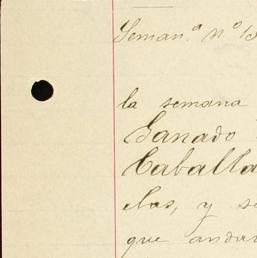 Seman.ª Nº 13
la semana
Ganado
Caballa
elas, y se
que andar